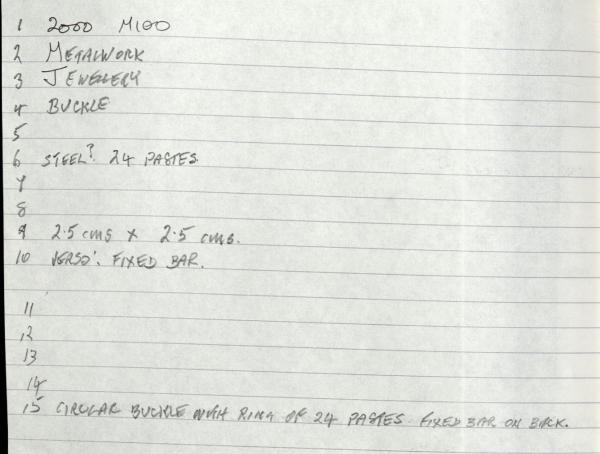 1 2000 M100
2 METALWORK
3 JEWELLERY
4 BUCKLE
5
6 STEEL? 24 PASTES
7
8
9 2.5 cms x 2.5 cms.
10 VERSO: FIXED BAR.
11
12
13
14
15 CIRCULAR BUCKLE WITH RING OF 24 PASTES. FIXED BAR ON BACK.